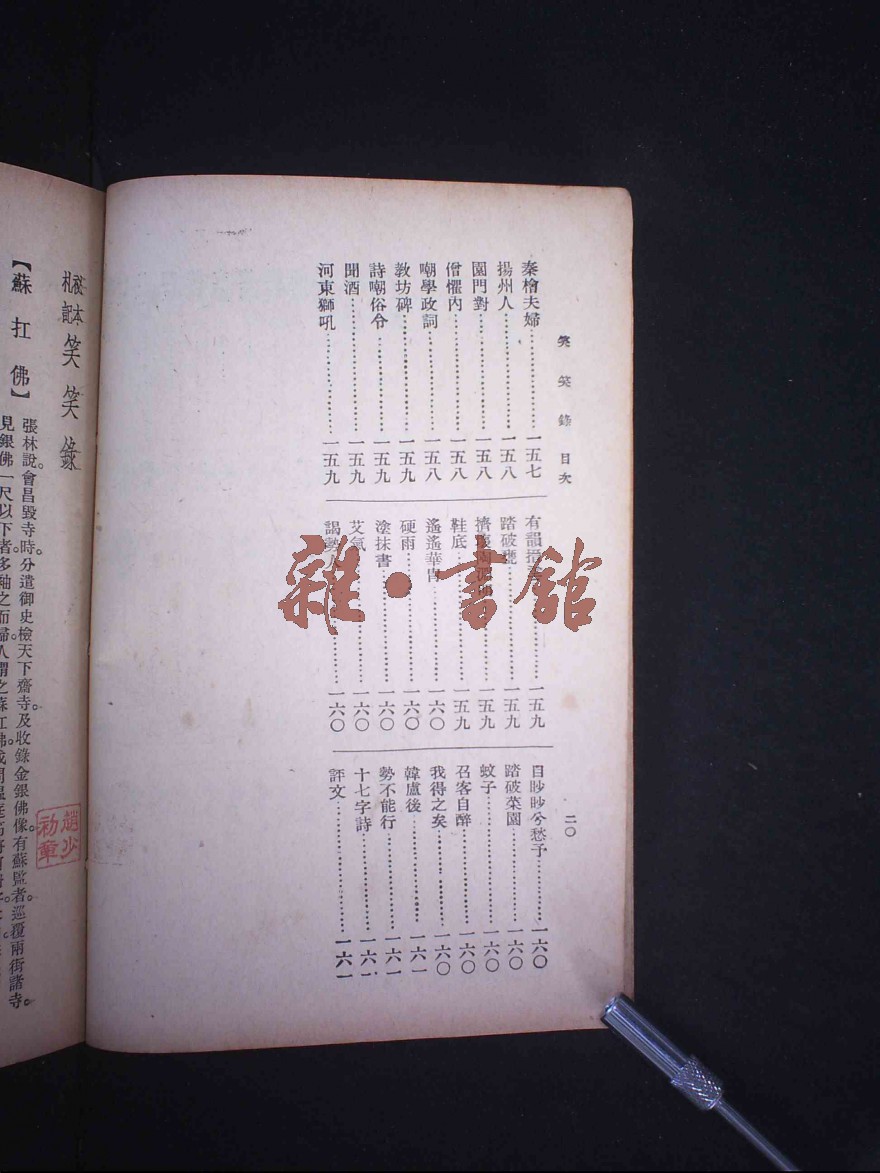 笑笑錄目次
二〇
秦檜夫婦……一五七
揚州人……一五八
園門對……一五八
僧懼內……一五八
嘲學政詞……一五八
敎坊碑……一五九
詩嘲俗令……一五九
聞酒……一五九
河東獅吼……一五九
有韻……一五九
踏破甕……一五九
一五九
鞋底……一五九
遙遙華胄……一六〇
硬雨……一六〇
塗抹書……一六〇
艾氣……一六〇
謁……一六〇
目眇眇兮愁予……一六〇
踏破菜園……一六〇
蚊子……一六〇
召客自醉……一六〇
我得之矣……一六〇
韓盧後……一六一
勢不能行……一六一
十七字詩……一六一
評文……一六一
雜·書館
札記
本
笑笑錄
【蘇扛佛】
張林說。會昌毀寺時。分遣御史檢天下齋寺。及收錄金銀佛像。有蘇監者。巡覆兩街諸寺。
見銀佛一尺以下者。多袖之而歸。人謂之蘇扛佛。
趙少
初章